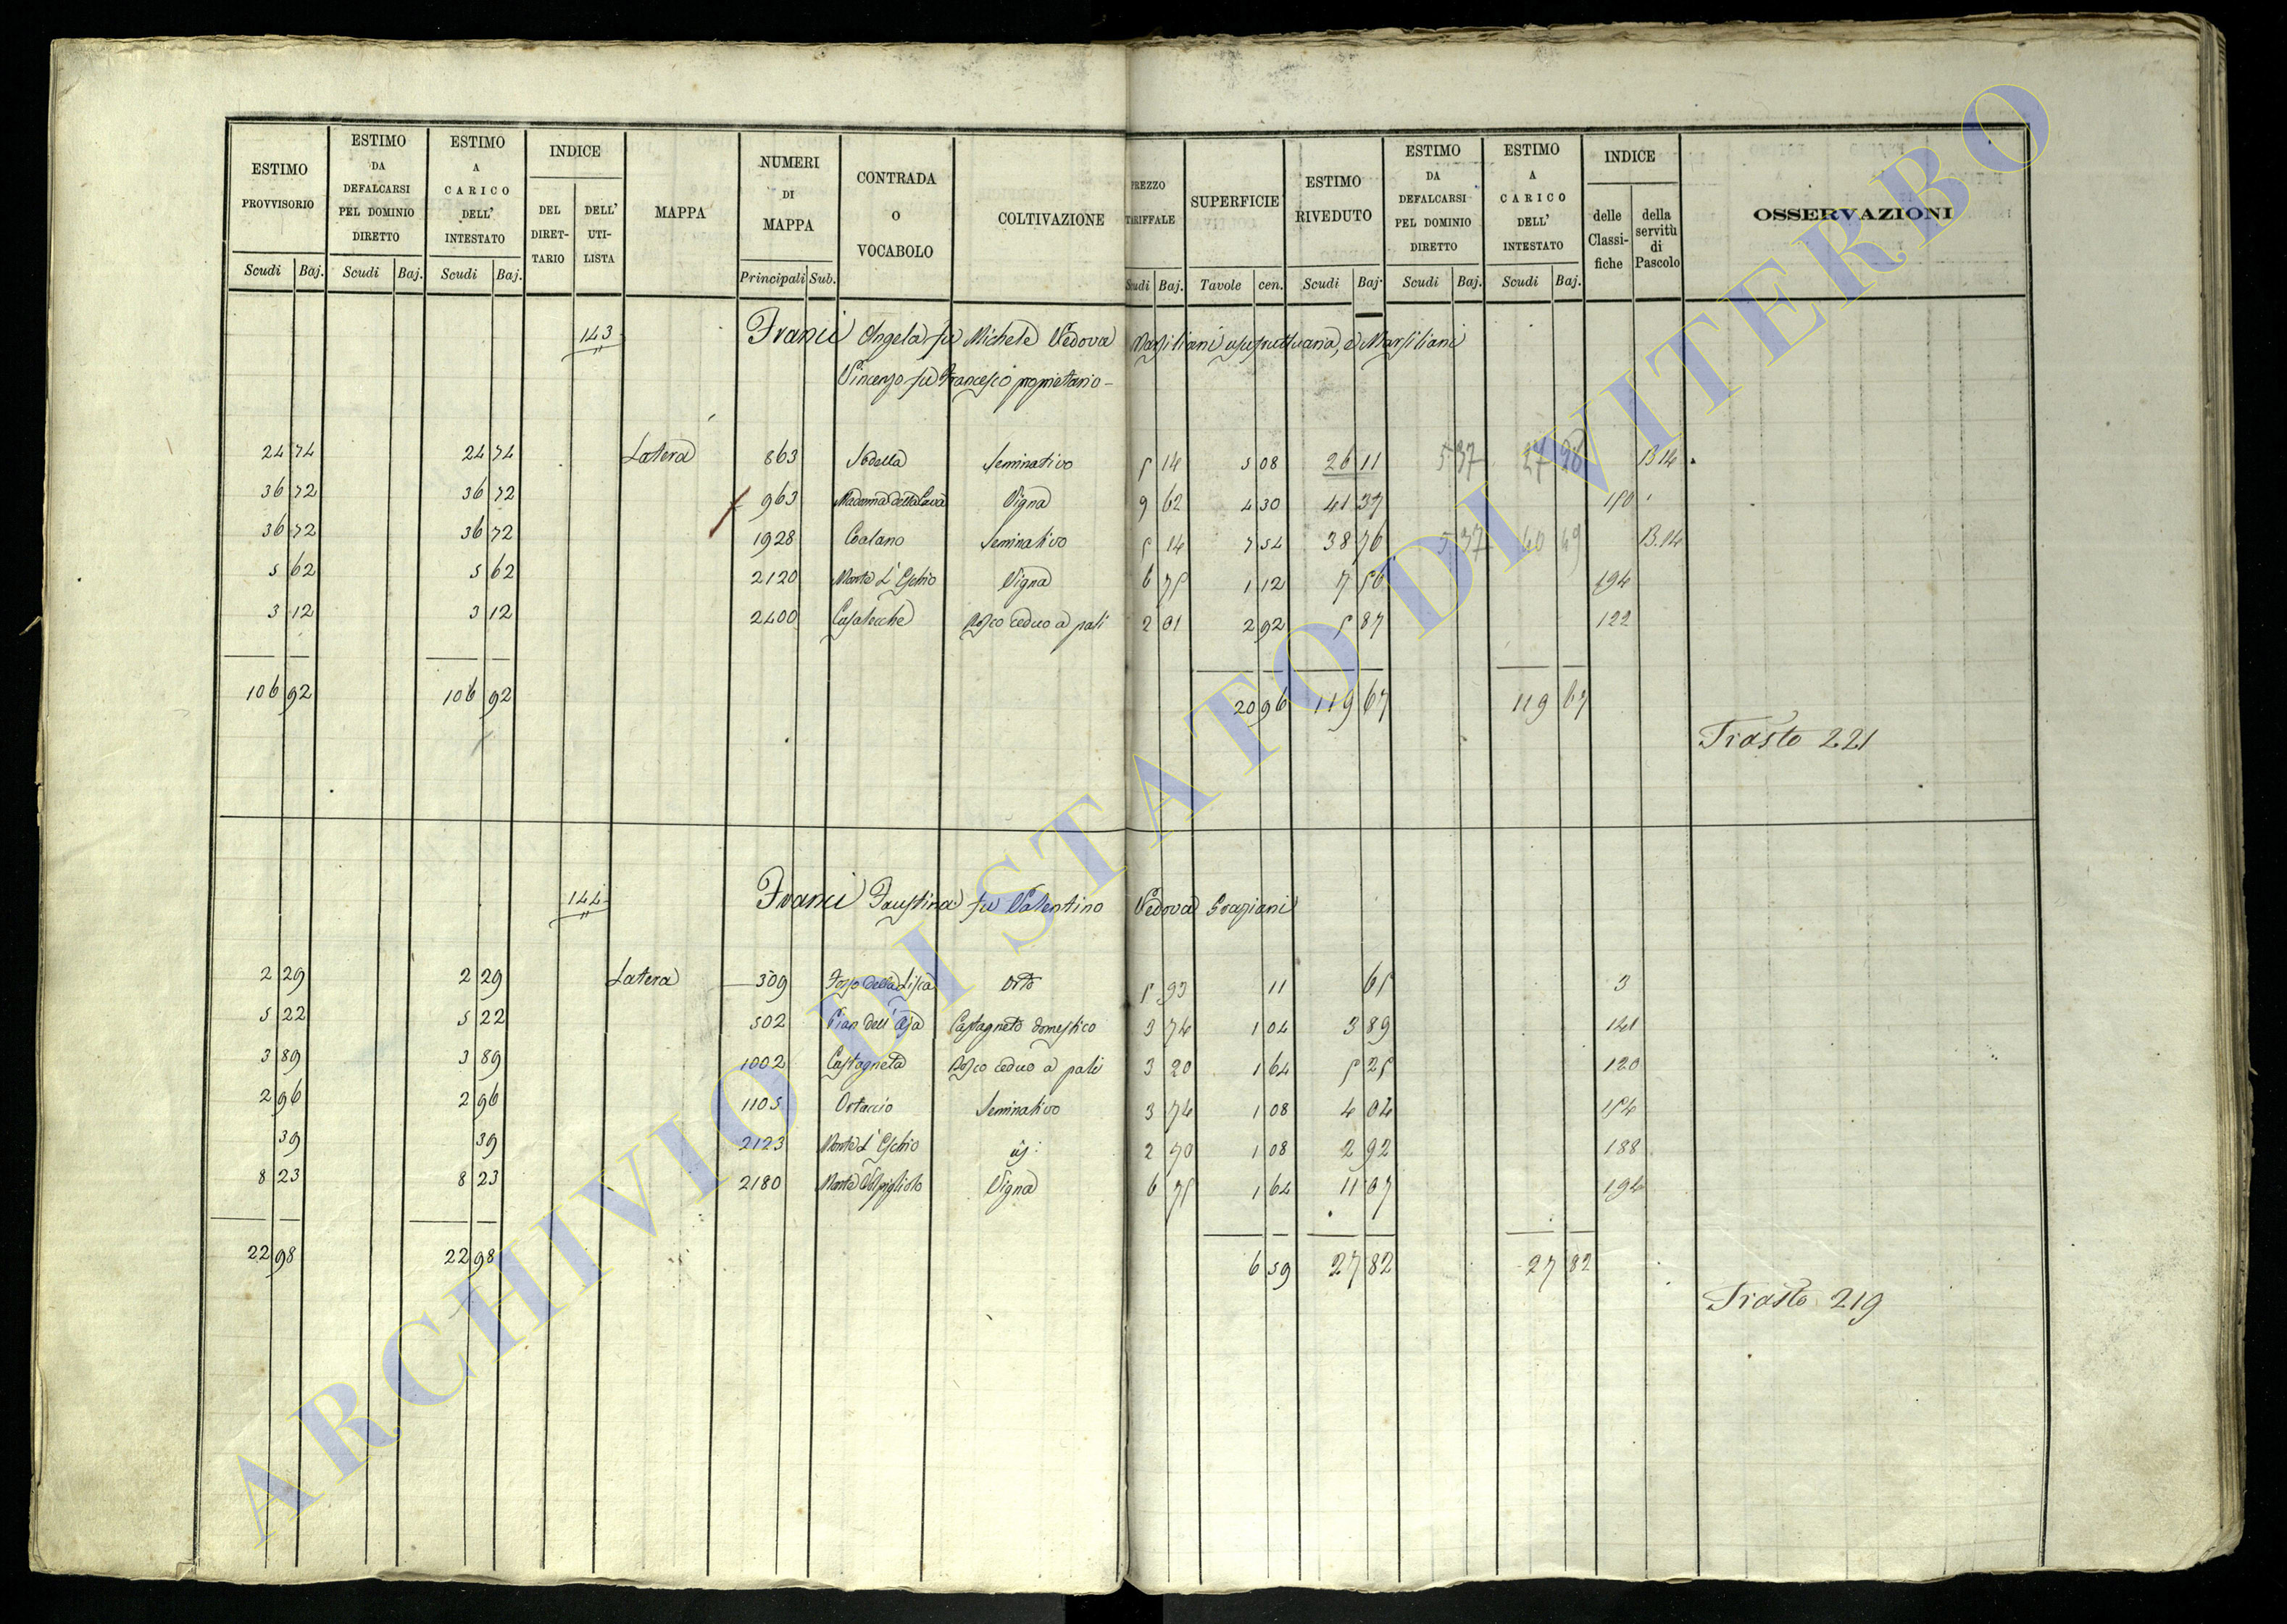 ESTIMO PROVVISORIO | ESTIMO DA DEFALCARSI PEL DOMINIO DIRETTO | ESTIMO A CARICO DELL' INTESTATO | INDICE DEL DIRET-TARIO | DELL' UTI-LISTA | MAPPA | NUMERI DI MAPPA | CONTRADA O VOCABOLO | COLTIVAZIONE | PREZZO TARIFFALE | SUPERFICIE | ESTIMO RIVEDUTO | ESTIMO DA DEFALCARSI PEL DOMINIO DIRETTO | ESTIMO A CARICO DELL' INTESTATO | INDICE delle Classi-fiche | della servitù di Pascolo | OSSERVAZIONI
Scudi Baj. | Scudi Baj. | Scudi Baj. | Principali Sub. | Scudi Baj. | Tavole cen. | Scudi Baj. | Scudi Baj. | Scudi Baj.
143 Franci Angela fu Michele Vedova Marsiliani usufruttuaria, e Marsiliani
Vincenzo fu Francesco proprietario -
24 74 | 24 74 | Latera | 863 | Sodella | Seminativo | 5 14 | 5 08 | 26 11 | 5 37 | 27 28 | B.14
36 72 | 36 72 | 963 | Madonna della Cava | Vigna | 9 62 | 4 30 | 41 37 | 150
36 72 | 36 72 | 1928 | Coalano | Seminativo | 5 14 | 7 54 | 38 76 | 5 37 | 40 49 | B.14
5 62 | 5 62 | 2120 | Monte L'Eschio | Vigna | 6 75 | 1 12 | 7 56 | 194
3 12 | 3 12 | 2400 | Casalecche | Bosco ceduo a pali | 2 01 | 2 92 | 5 87 | 122
106 92 | 106 92 | 20 96 | 119 67 | 119 67
Trasto 221
144 Franci Faustina fu Valentino Vedova Graziani
2 29 | 2 29 | Latera | 309 | Fosso della Lisca | Orto | 5 93 | 11 | 65 | 3
5 22 | 5 22 | 502 | Pian dell'Aja | Castagneto domestico | 3 74 | 1 04 | 3 89 | 121
3 89 | 3 89 | 1002 | Castagneta | Bosco ceduo a pali | 3 20 | 1 64 | 5 25 | 120
2 96 | 2 96 | 1105 | Ortaccio | Seminativo | 3 74 | 1 08 | 4 04 | 154
39 | 39 | 2123 | Monte L'Eschio | 2 70 | 1 08 | 2 92 | 188
8 23 | 8 23 | 2180 | Monte | Vigna | 6 75 | 1 64 | 11 07 | 194
22 98 | 22 98 | 6 59 | 27 82 | 27 82
Trasto 219
ARCHIVIO DI STATO DI VITERBO